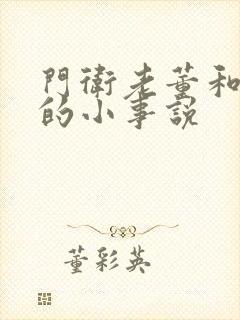 門衛老董和
的小事說
董彩英